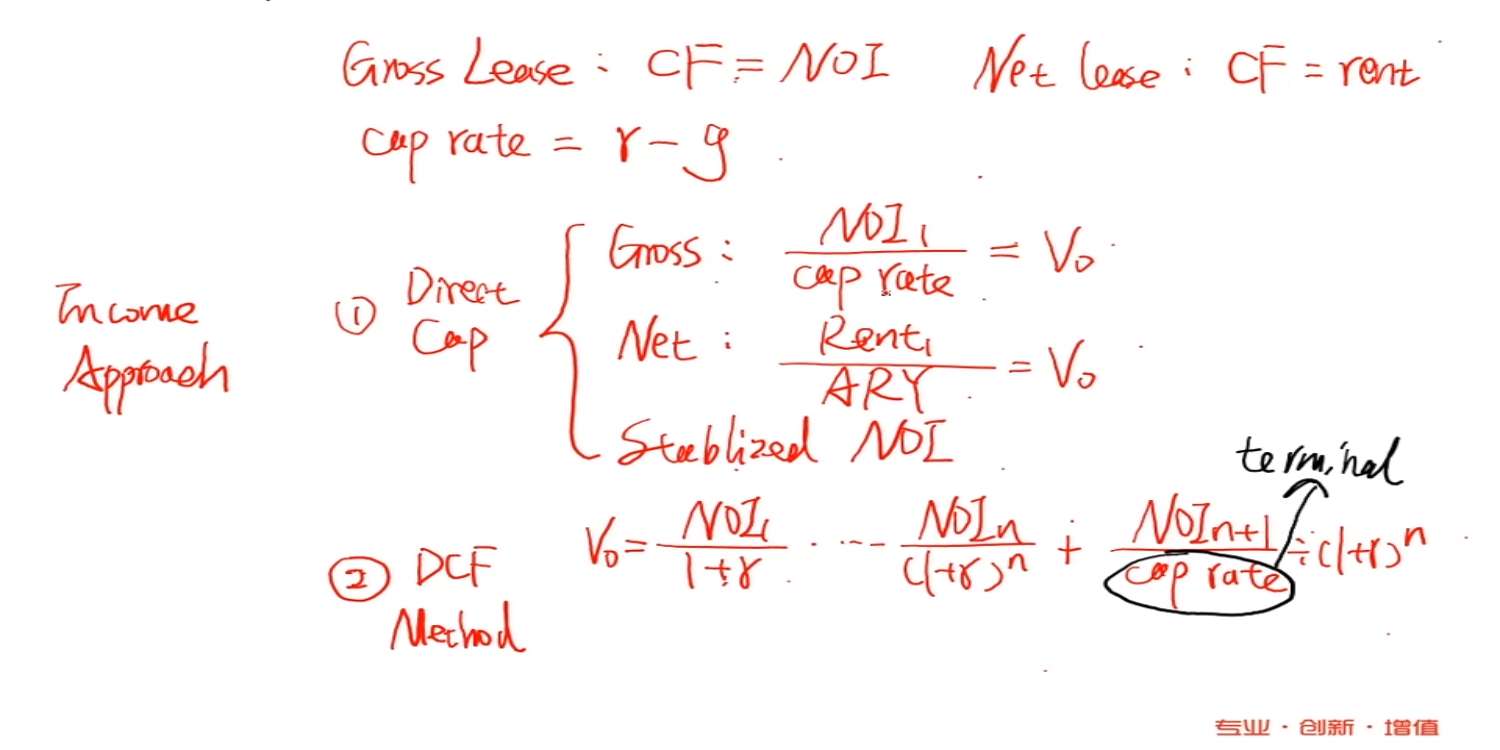 Gross Lease : CF = NOI Net lease : CF = rent
cap rate = r - g
Income Approach
① Direct Cap
Gross : NOI₁ / cap rate = V₀
Net : Rent₁ / ARY = V₀
Stablized NOI
terminal
② DCF Method
V₀ = NOI₁ / 1+r ····· NOIn / (1+r)ⁿ + NOIn+1 / cap rate ÷ (1+r)ⁿ
专业·创新·增值